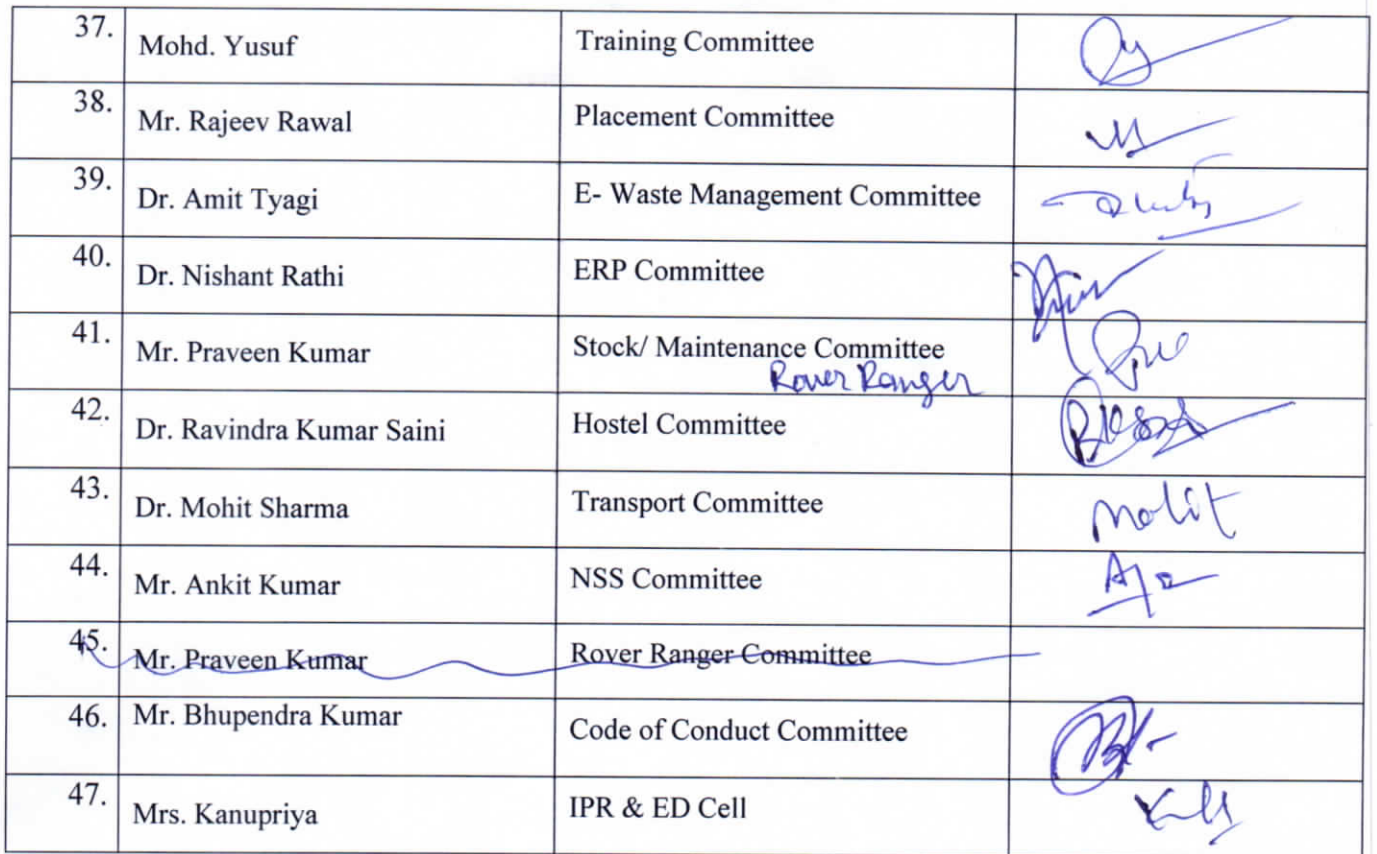 37. Mohd. Yusuf Training Committee
38. Mr. Rajeev Rawal Placement Committee
39. Dr. Amit Tyagi E- Waste Management Committee
40. Dr. Nishant Rathi ERP Committee
41. Mr. Praveen Kumar Stock/ Maintenance Committee
Rover Ranger
42. Dr. Ravindra Kumar Saini Hostel Committee
43. Dr. Mohit Sharma Transport Committee Mohit
44. Mr. Ankit Kumar NSS Committee
45. Mr. Praveen Kumar Rover Ranger Committee
46. Mr. Bhupendra Kumar Code of Conduct Committee
47. Mrs. Kanupriya IPR & ED Cell